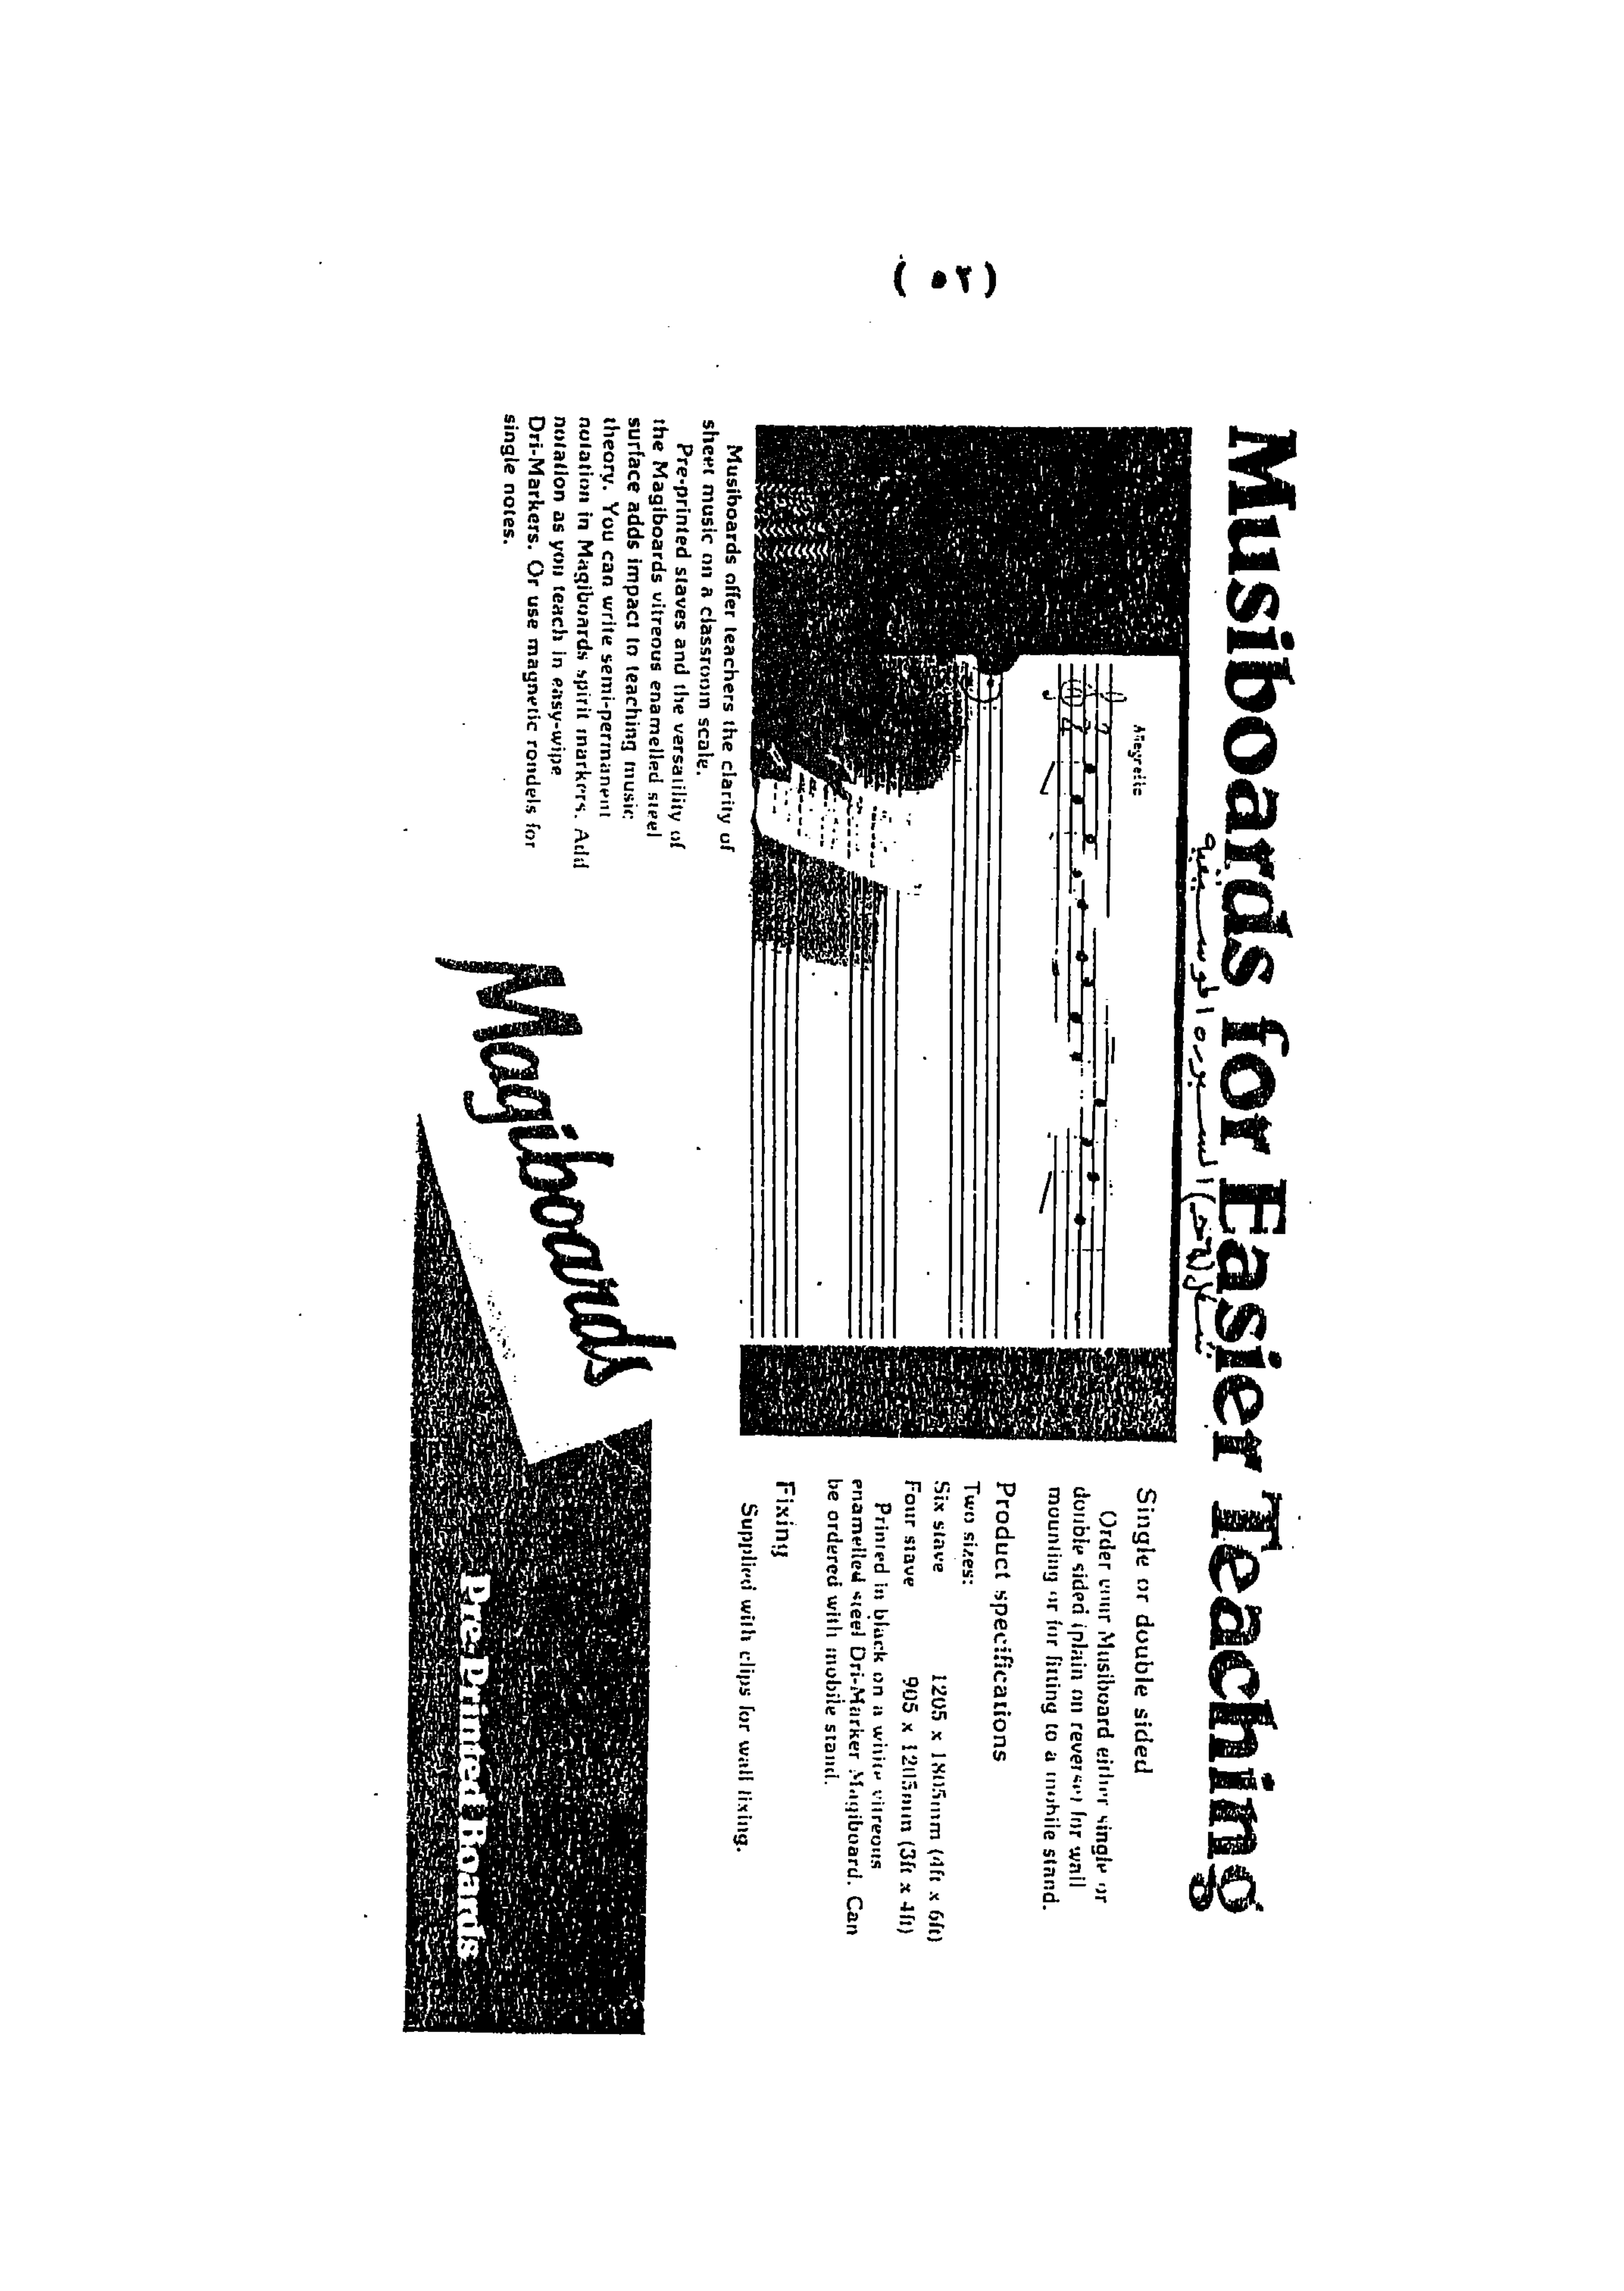 ( ٥٢ )
Musiboards for Easier Teaching
السبورة الموسيقية
Allegretto
Musiboards offer teachers the clarity of
sheet music on a classroom scale.
Pre-printed staves and the versatility of
the Magiboards vitreous enamelled steel
surface adds impact to teaching music
theory. You can write semi-permanent
notation in Magiboards spirit markers. Add
notation as you teach in easy-wipe
Dri-Markers. Or use magnetic rondels for
single notes.
Single or double sided
Order your Musiboard either single or
double sided (plain on reverse) for wall
mounting or for fitting to a mobile stand.
Product specifications
Two sizes:
Six stave 1205 x 1805mm (4ft x 6ft)
Four stave 905 x 1205mm (3ft x 4ft)
Printed in black on a white vitreous
enamelled steel Dri-Marker Magiboard. Can
be ordered with mobile stand.
Fixing
Supplied with clips for wall fixing.
Magiboards
Pre-Printed Boards